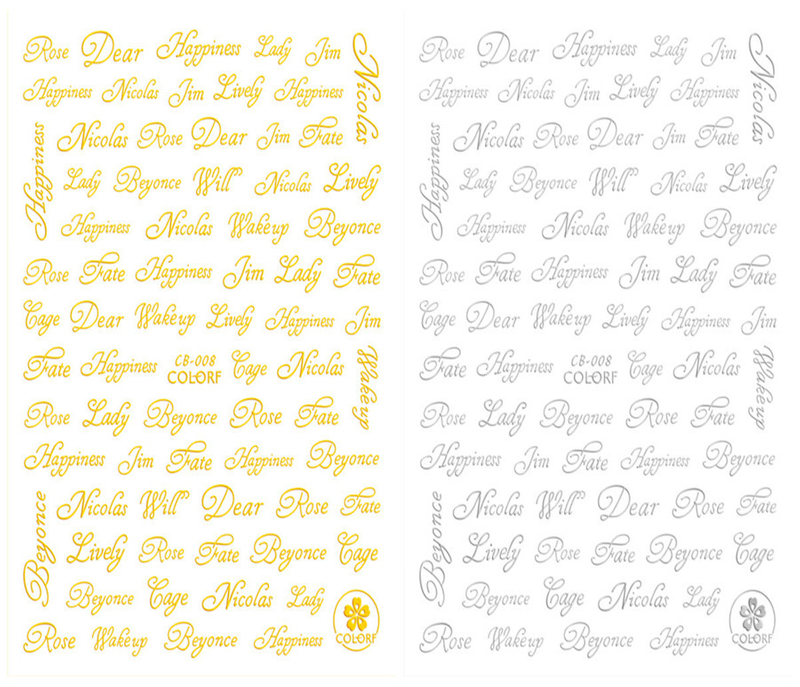 Rose Dear Happiness Lady Jim
Nicolas
Happiness Nicolas Jim Lively Happiness
Nicolas Rose Dear Jim Fate
Happiness
Lady Beyonce Will Nicolas Lively
Happiness Nicolas Wakeup Beyonce
Rose Fate Happiness Jim Lady Fate
Cage Dear Wakeup Lively Happiness Jim
Fate Happiness CB-008 COLORF Cage Nicolas
Wakeup
Rose Lady Beyonce Rose Fate
Happiness Jim Fate Happiness Beyonce
Nicolas Will Dear Rose Fate
Beyonce
Lively Rose Fate Beyonce Cage
Beyonce Cage Nicolas Lady
COLORF
Rose Wakeup Beyonce Happiness
Rose Dear Happiness Lady Jim
Nicolas
Happiness Nicolas Jim Lively Happiness
Nicolas Rose Dear Jim Fate
Happiness
Lady Beyonce Will Nicolas Lively
Happiness Nicolas Wakeup Beyonce
Rose Fate Happiness Jim Lady Fate
Cage Dear Wakeup Lively Happiness Jim
Fate Happiness CB-008 COLORF Cage Nicolas
Wakeup
Rose Lady Beyonce Rose Fate
Happiness Jim Fate Happiness Beyonce
Nicolas Will Dear Rose Fate
Beyonce
Lively Rose Fate Beyonce Cage
Beyonce Cage Nicolas Lady
COLORF
Rose Wakeup Beyonce Happiness